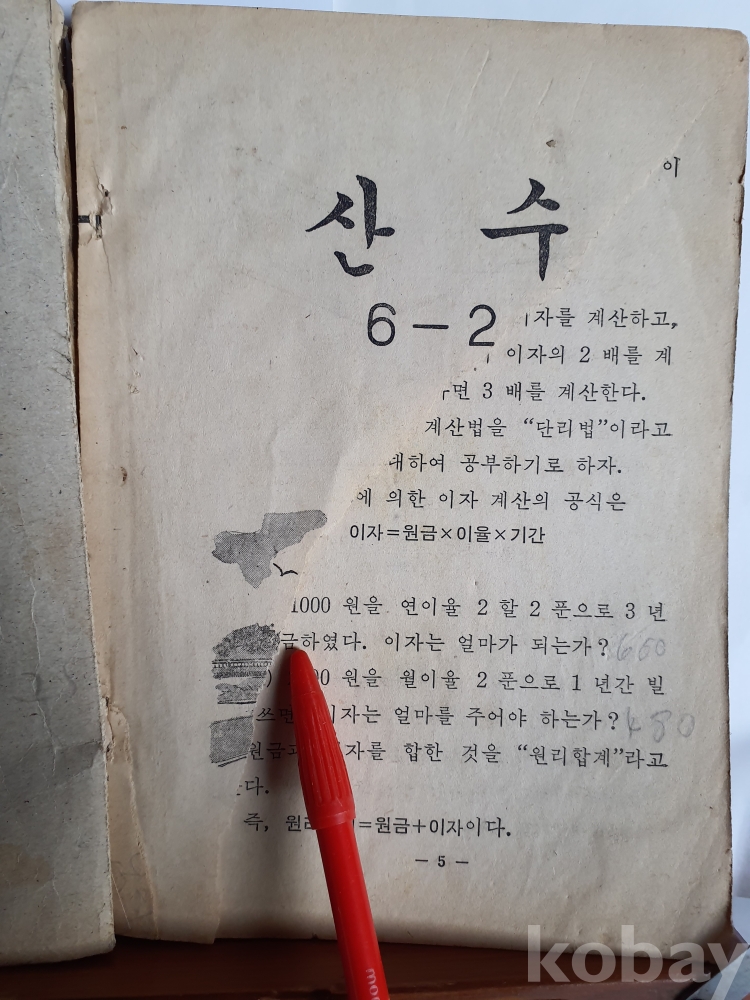 이
산 수
6-2
자를 계산하고,
이자의 2 배를 계
면 3 배를 계산한다.
계산법을 “단리법”이라고
대하여 공부하기로 하자.
에 의한 이자 계산의 공식은
이자=원금×이율×기간
1000 원을 연이율 2 할 2 푼으로 3 년
금하였다. 이자는 얼마가 되는가? 660
원을 월이율 2 푼으로 1 년간 빌
쓰면 이자는 얼마를 주어야 하는가? 480
원금과 자를 합한 것을 “원리합계”라고
다.
즉, =원금+이자이다.
- 5 -
kobay